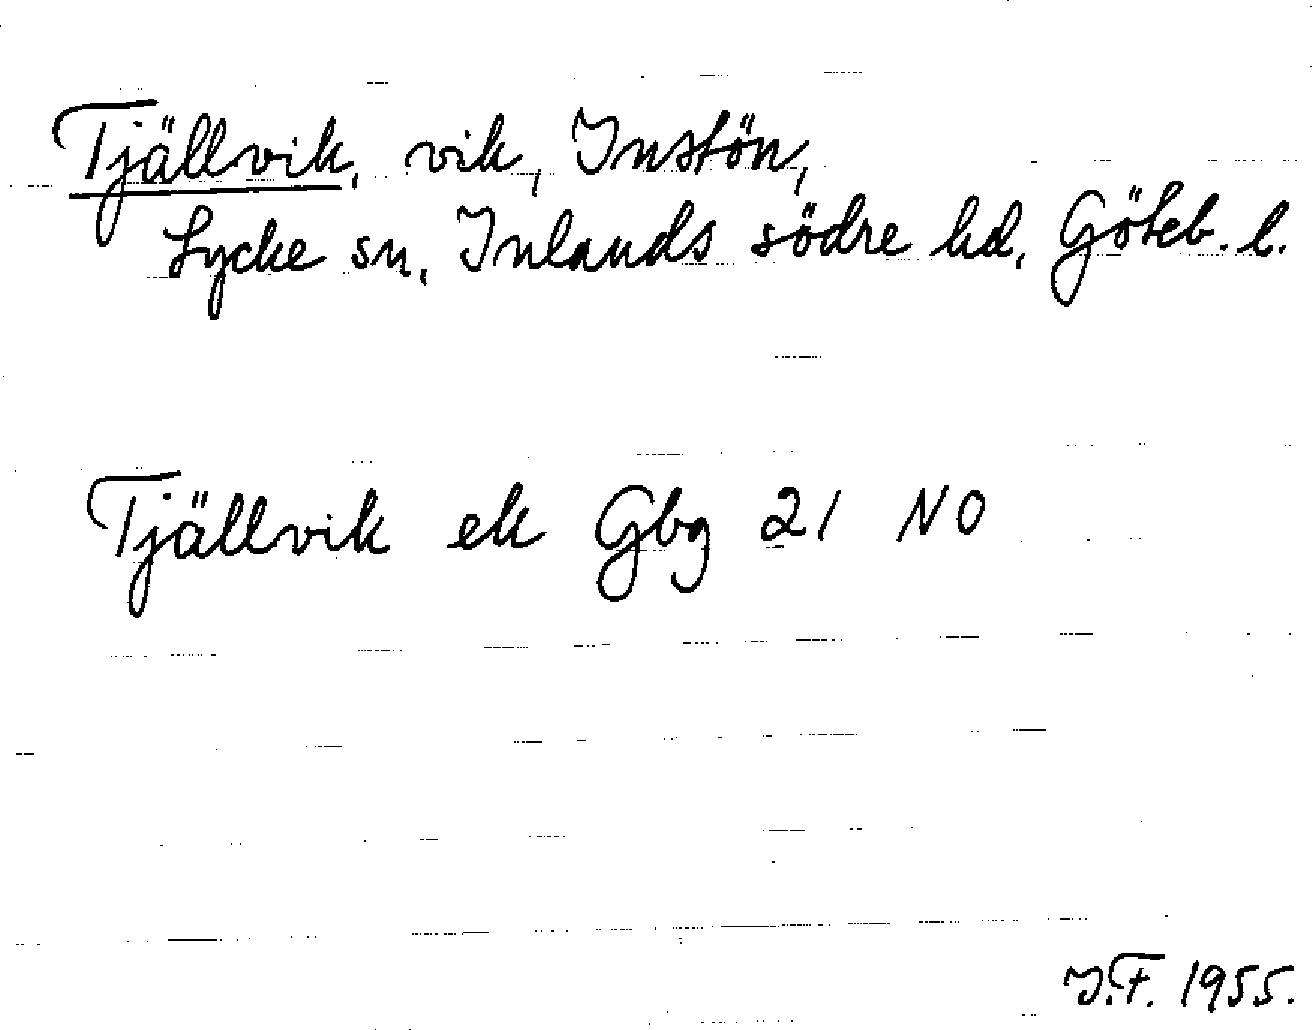 Tjällvik, vik, Instön,
Lycke sn, Inlands södre hd, Göteb. l.
Tjällvik ek Gbg 21 NO
I.F. 1955.